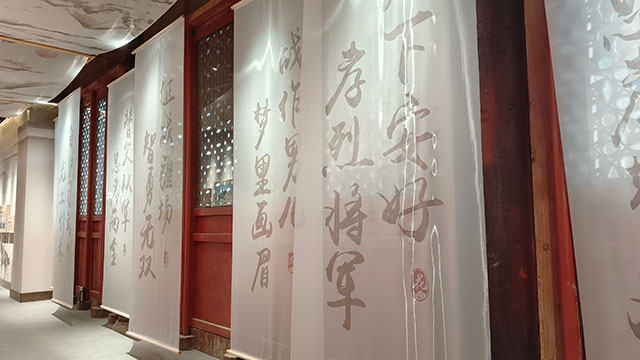 下安好
孝烈将军
战作男儿
梦里画眉
征战疆场
智勇无双
替父从军
忠孝两全